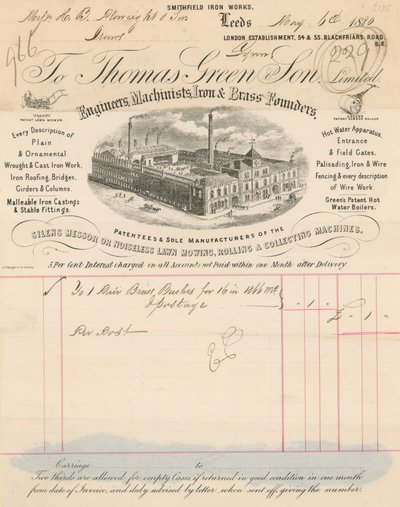 SMITHFIELD IRON WORKS.
Leeds May 6th 1880
LONDON ESTABLISHMENT, 54 & 55, BLACKFRIARS ROAD,
S.E.
966
229
To Thomas Green & Son, Limited.
Engineers, Machinists, Iron & Brass Founders,
GREEN'S
PATENT LAWN MOWER.
PATENT GARDEN ROLLER
Every Description of
Plain
& Ornamental
Wrought & Cast Iron Work,
Iron Roofing, Bridges,
Girders & Columns.
Malleable Iron Castings
& Stable Fittings.
Hot Water Apparatus,
Entrance
& Field Gates,
Palisading, Iron & Wire
Fencing & every description
of Wire Work.
Green's Patent Hot
Water Boilers.
PATENTEES & SOLE MANUFACTURERS OF THE
SILENS MESSOR OR NOISELESS LAWN MOWING, ROLLING & COLLECTING MACHINES,
5 Per Cent Interest charged on all Accounts not Paid within one Month after Delivery
To 1 Pair Brass Bushes for 16 in
& postage " 1 " £ " 1 "
Per Post
Carriage to
Two thirds are allowed for empty Cases if returned in good condition in one month
from date of Invoice, and duly advised by letter, when sent off, giving the number.